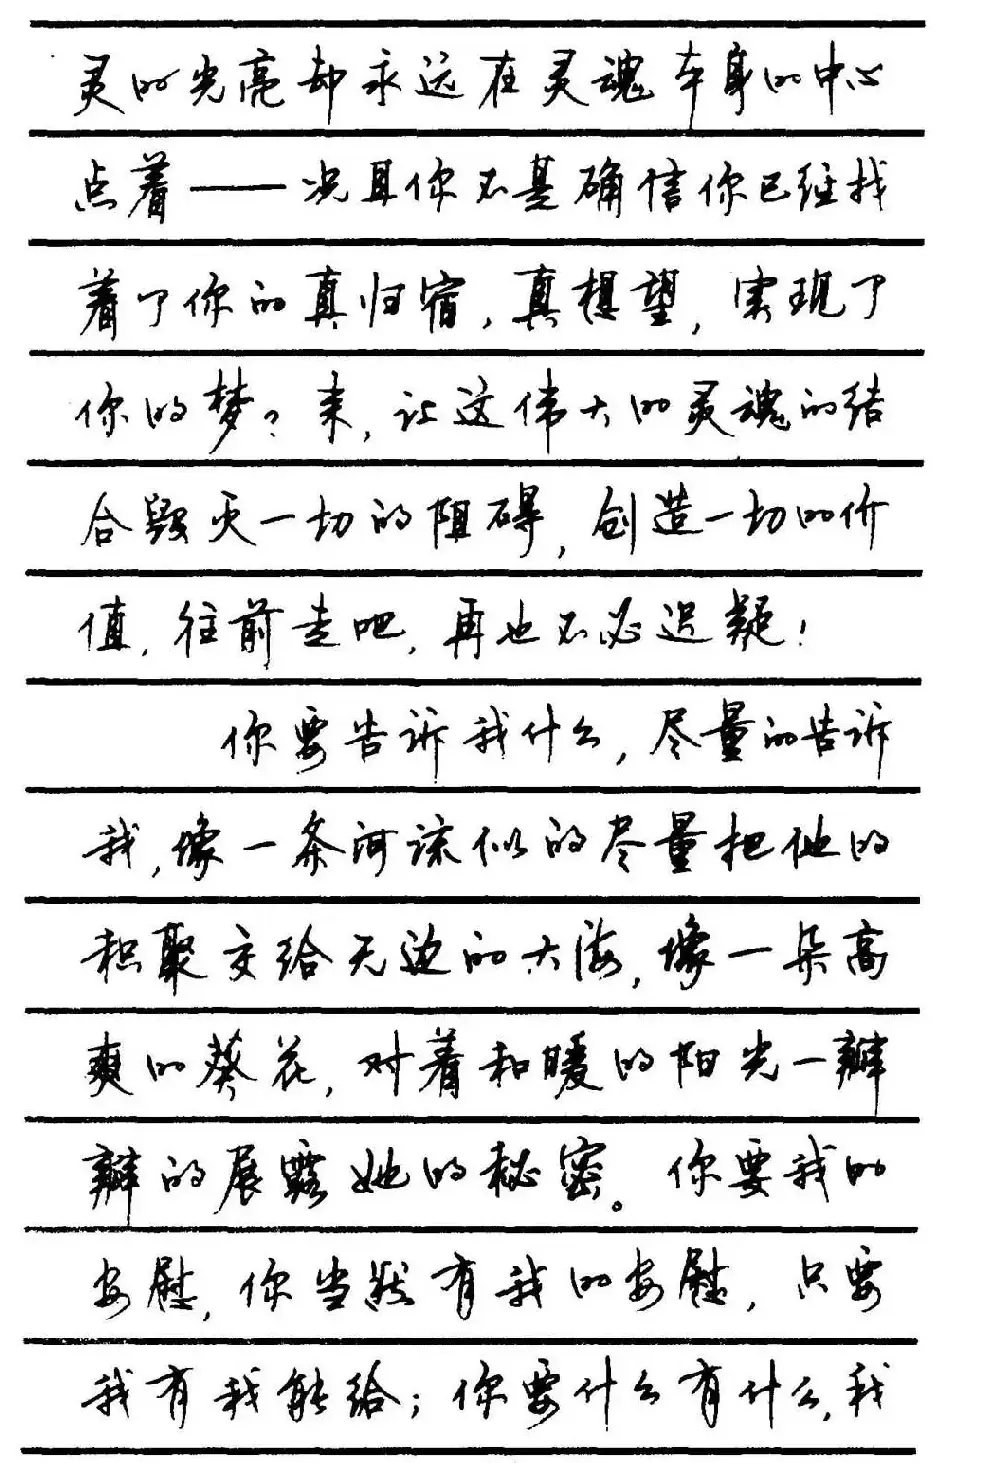 灵的光亮却永远在灵魂本身的中心
点着——况且你不是确信你已经找
着了你的真归宿，真想望，实现了
你的梦？来，让这伟大的灵魂的结
合毁灭一切的阻碍，创造一切的价
值，往前走吧，再也不必迟疑！
你要告诉我什么，尽量的告诉
我，像一条河流似的尽量把他的
积聚交给无边的大海，像一朵高
爽的葵花，对着和暖的阳光一瓣
瓣的展露她的秘密。你要我的
安慰，你当然有我的安慰，只要
我有我能给；你要什么有什么，我